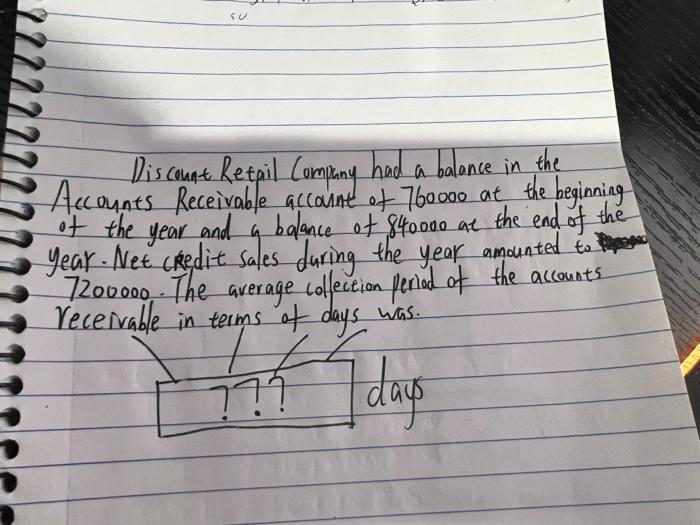 su
Discount Retail Company had a balance in the
Accounts Receivable account of 760000 at the beginning
of the year and a balance of 840000 at the end of the
year. Net credit sales during the year amounted to
7200000. The average collection period of the accounts
receivable in terms of days was.
??? days